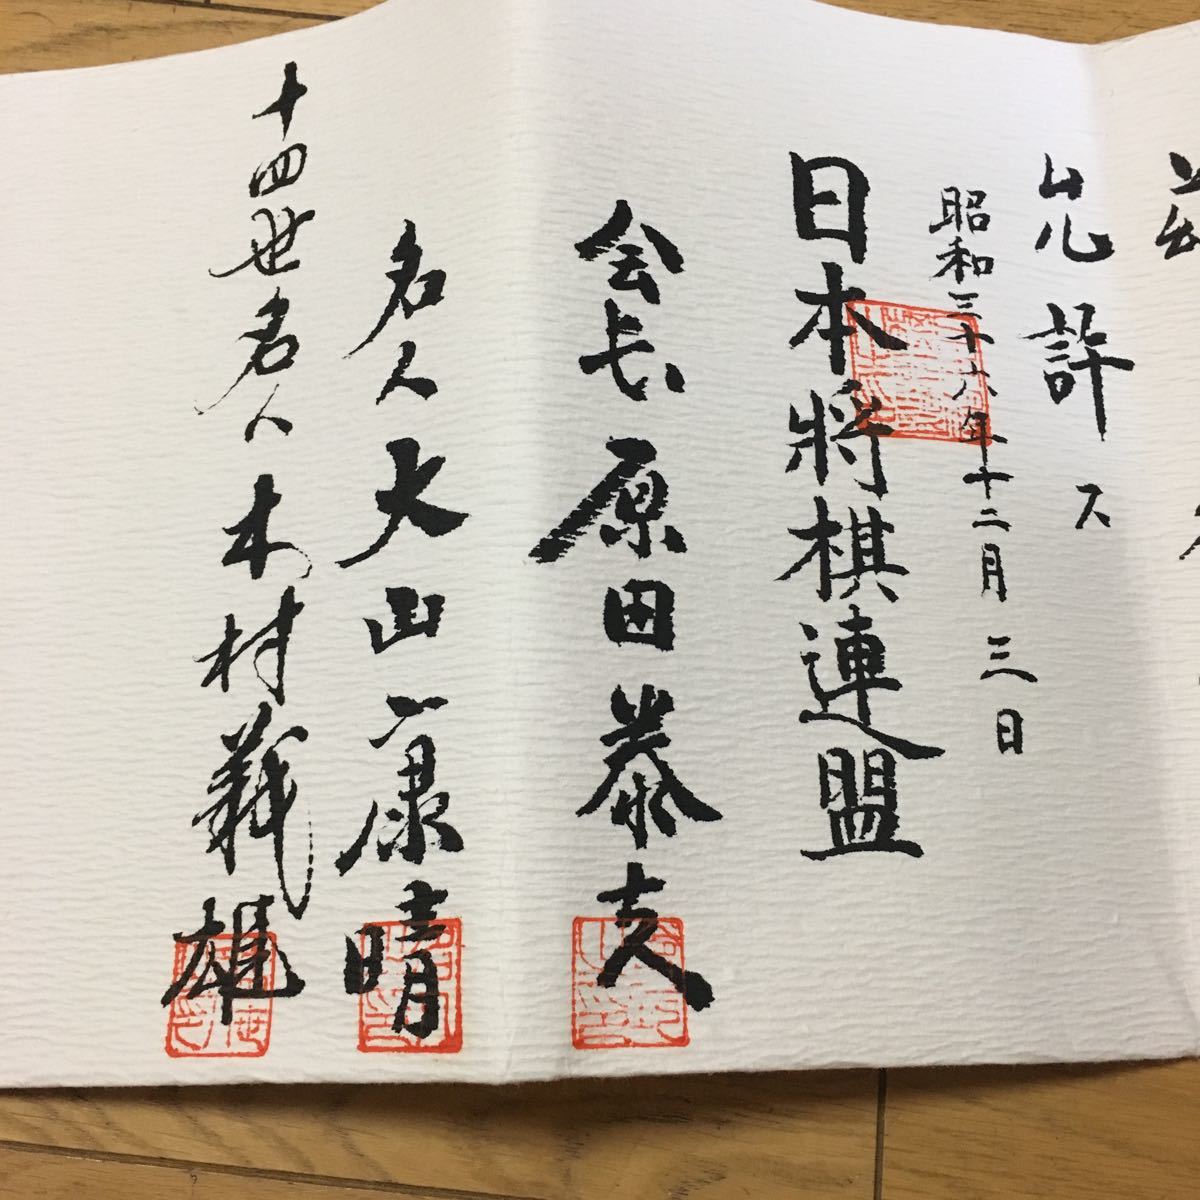 玆
允許ス
昭和三十六年十二月三日
日本將棋連盟
会長 原田泰夫
名人 大山康晴
十四世名人 木村義雄